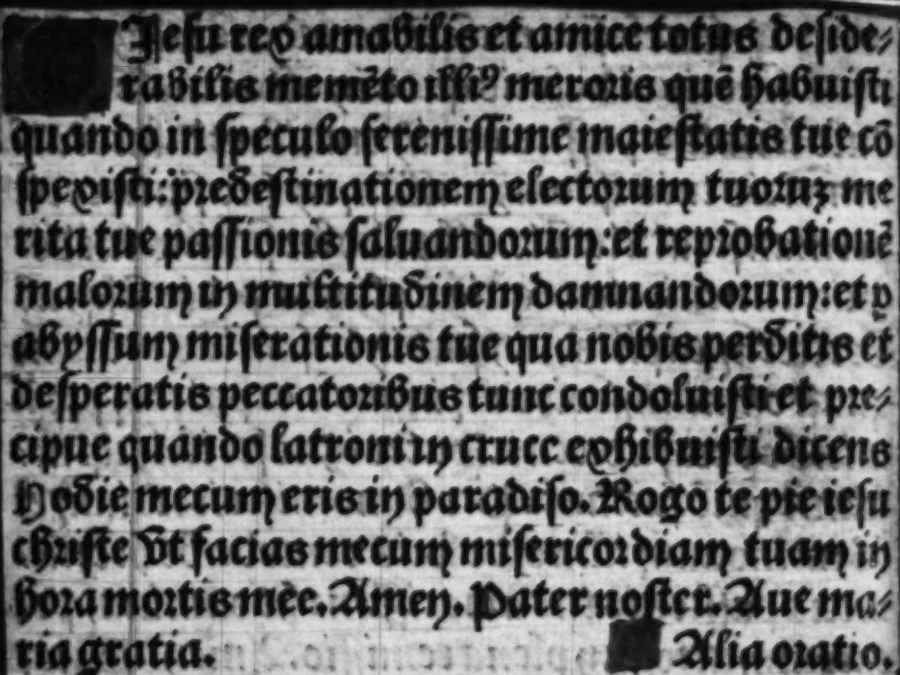 O Jesu rex amabilis et amice totus deside⸗
rabilis memēto illiꝰ meroris quē habuisti
quando in speculo serenissime maiestatis tue cō
spexisti: predestinationem electorum tuoruꝫ me
rita tue passionis saluandorum: et reprobationē
malorum in multitudinem damnandorum: et ꝑ
abyssum miserationis tue qua nobis perditis et
desperatis peccatoribus tunc condoluisti et pre⸗
cipue quando latroni in cruce exhibuisti dicens
Hodie mecum eris in paradiso. Rogo te pie iesu
christe vt facias mecum misericordiam tuam in
hora mortis mee. Amen. Pater noster. Aue ma⸗
ria gratia. Alia oratio.